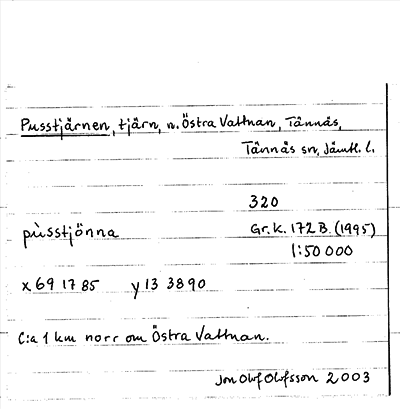 Pusstjärnen, tjärn, n. Östra Vattnan, Tännäs,
Tännäs sn, Jämtl. l.
320
pùsstjönna Gr.k. 172B. (1995)
1:50 000
x 69 17 85 y 13 38 90
C:a 1 km norr om Östra Vattnan.
Jon Olof Olofsson 2003